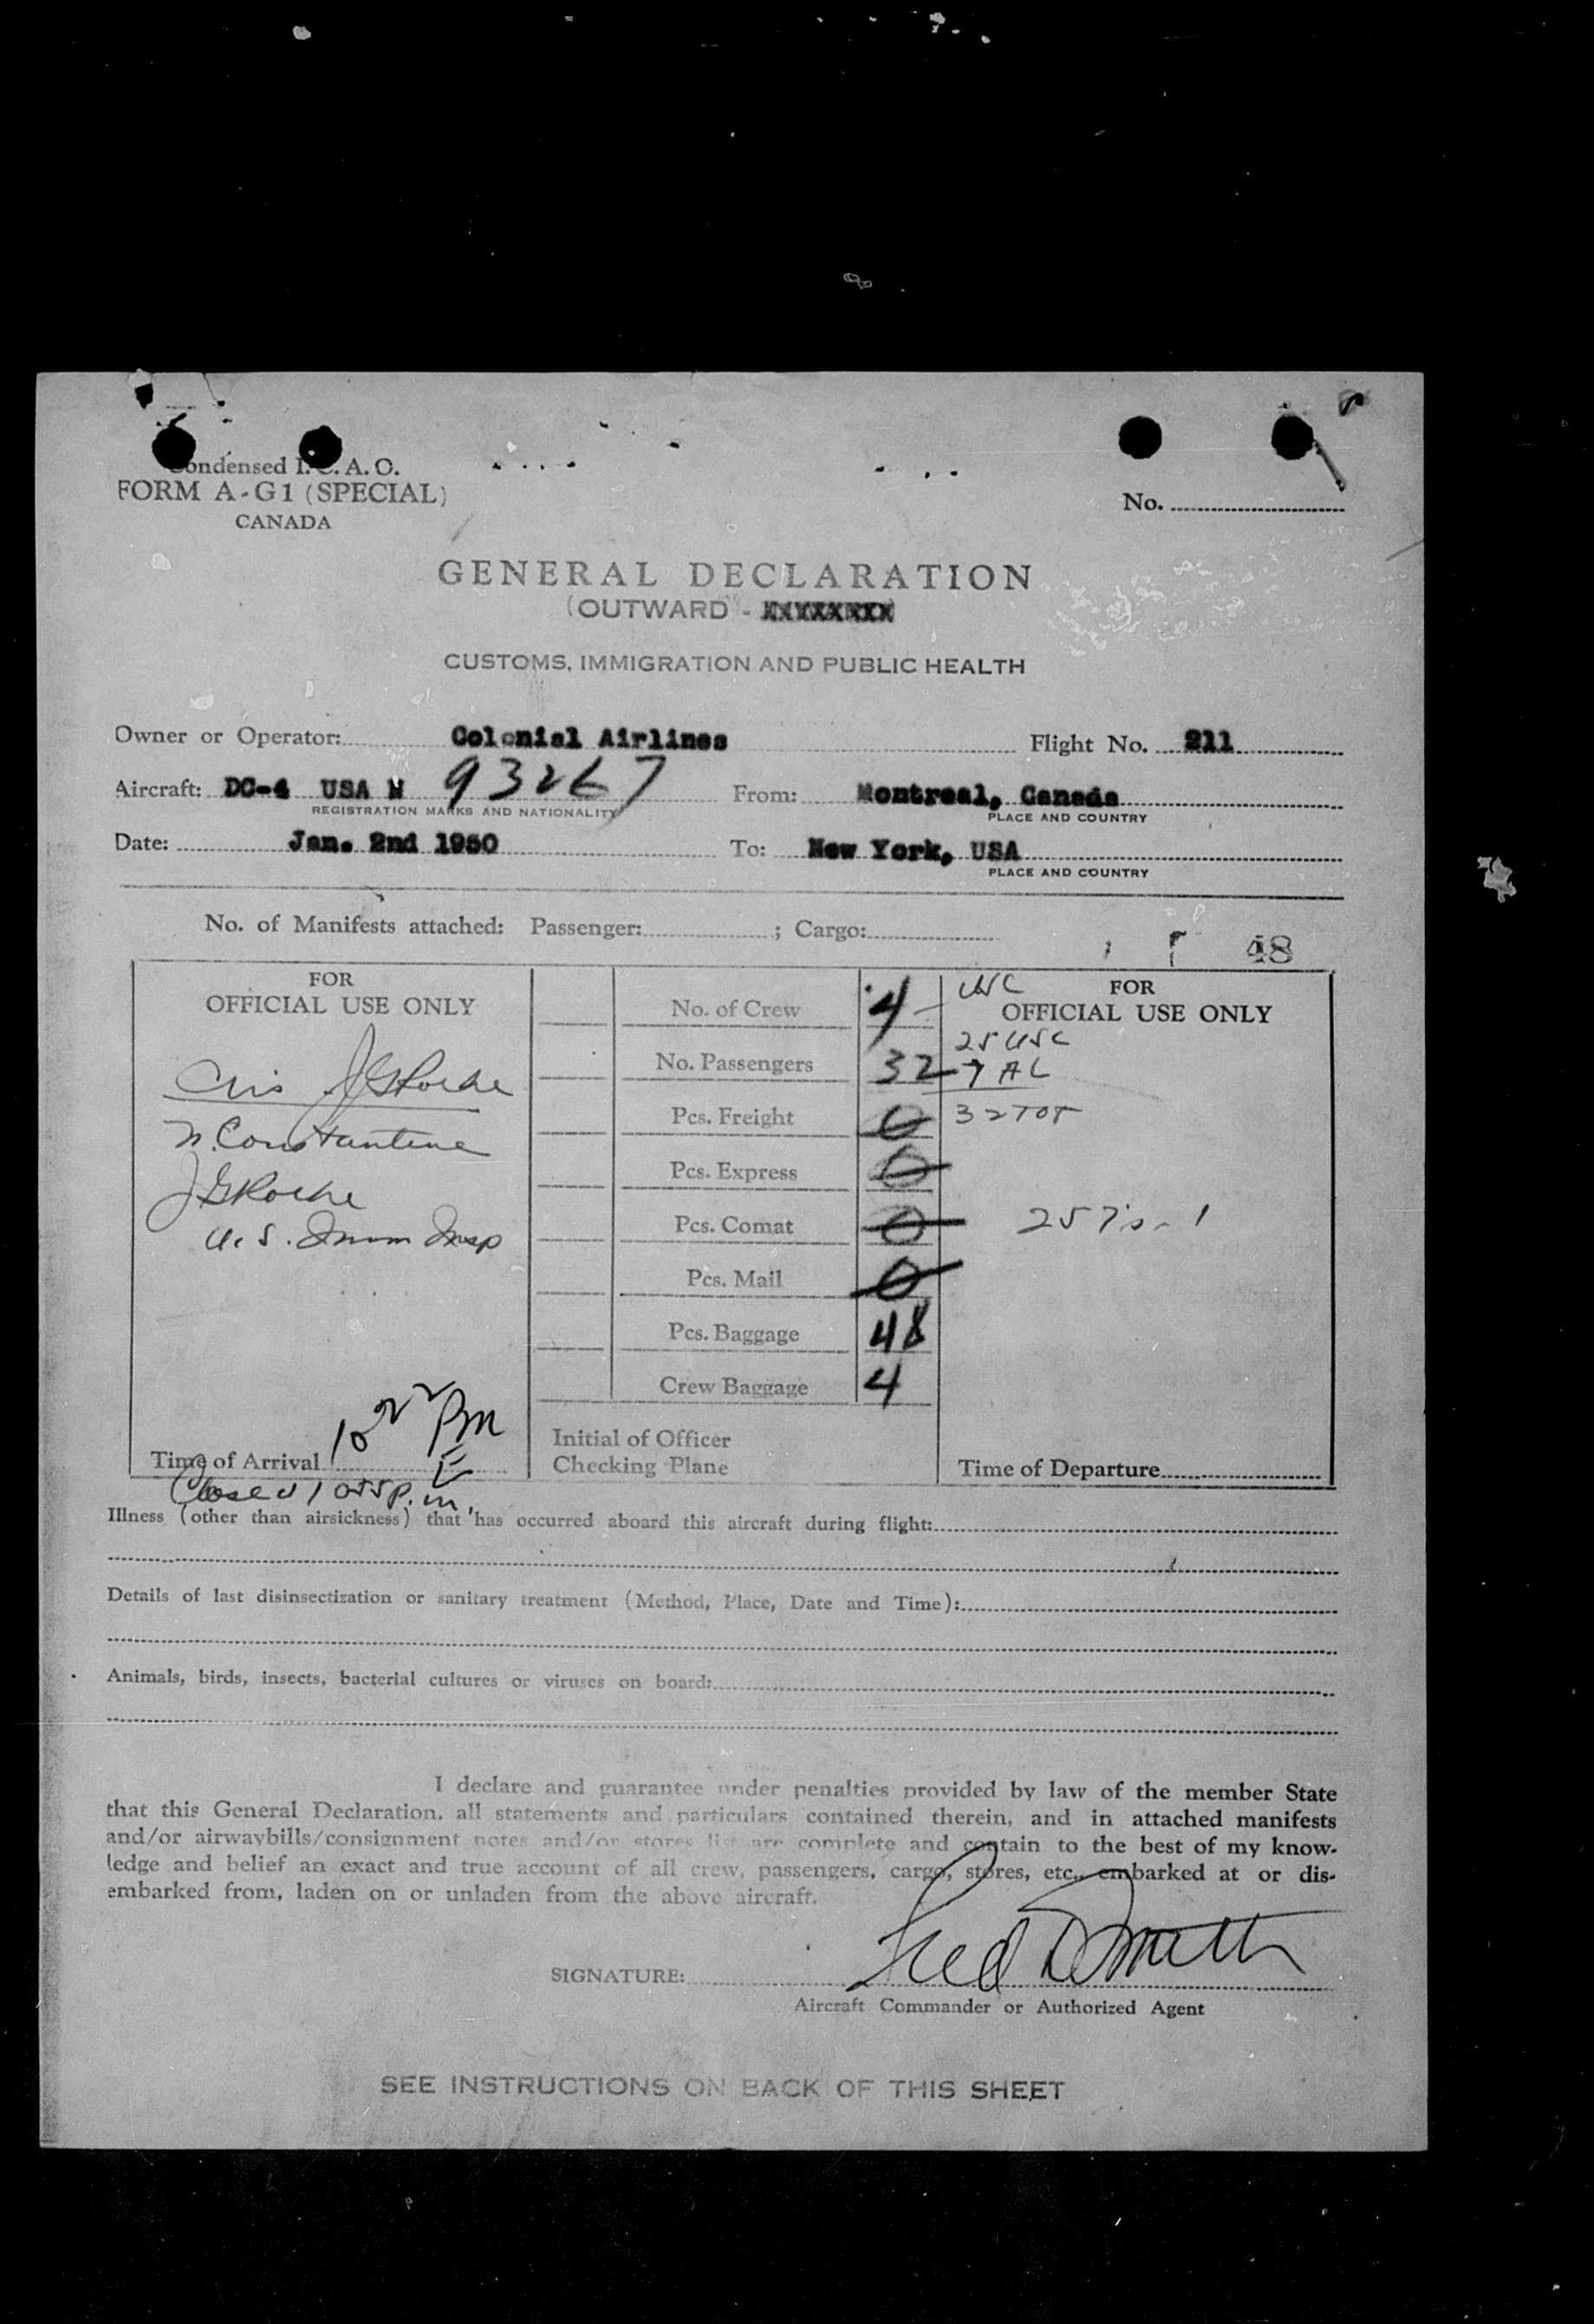 Condensed I.C.A.O.
FORM A-G1 (SPECIAL)
CANADA
No.
GENERAL DECLARATION
(OUTWARD - XXXXXXXX
CUSTOMS, IMMIGRATION AND PUBLIC HEALTH
Owner or Operator: Colonial Airlines Flight No. 211
Aircraft: DC-4 USA N 93267 From: Montreal, Canada
REGISTRATION MARKS AND NATIONALITY PLACE AND COUNTRY
Date: Jan. 2nd 1950 To: New York, USA
PLACE AND COUNTRY
No. of Manifests attached: Passenger: ; Cargo:
48
FOR
OFFICIAL USE ONLY
JGRoche
N. Constantine
JGRoche
U.S. Imm Insp
Time of Arrival 10 22 PM
E
Closed 1055 p.m.
No. of Crew 4
No. Passengers 32
Pcs. Freight 0
Pcs. Express 0
Pcs. Comat 0
Pcs. Mail 0
Pcs. Baggage 48
Crew Baggage 4
Initial of Officer
Checking Plane
USC FOR
OFFICIAL USE ONLY
25 USC
7 AL
32 TOT
Time of Departure
Illness (other than airsickness) that has occurred aboard this aircraft during flight:
Details of last disinsectization or sanitary treatment (Method, Place, Date and Time):
Animals, birds, insects, bacterial cultures or viruses on board:
I declare and guarantee under penalties provided by law of the member State
that this General Declaration, all statements and particulars contained therein, and in attached manifests
and/or airwaybills/consignment notes and/or stores list are complete and contain to the best of my know-
ledge and belief an exact and true account of all crew, passengers, cargo, stores, etc., embarked at or dis-
embarked from, laden on or unladen from the above aircraft.
SIGNATURE: Fred D Smith
Aircraft Commander or Authorized Agent
SEE INSTRUCTIONS ON BACK OF THIS SHEET